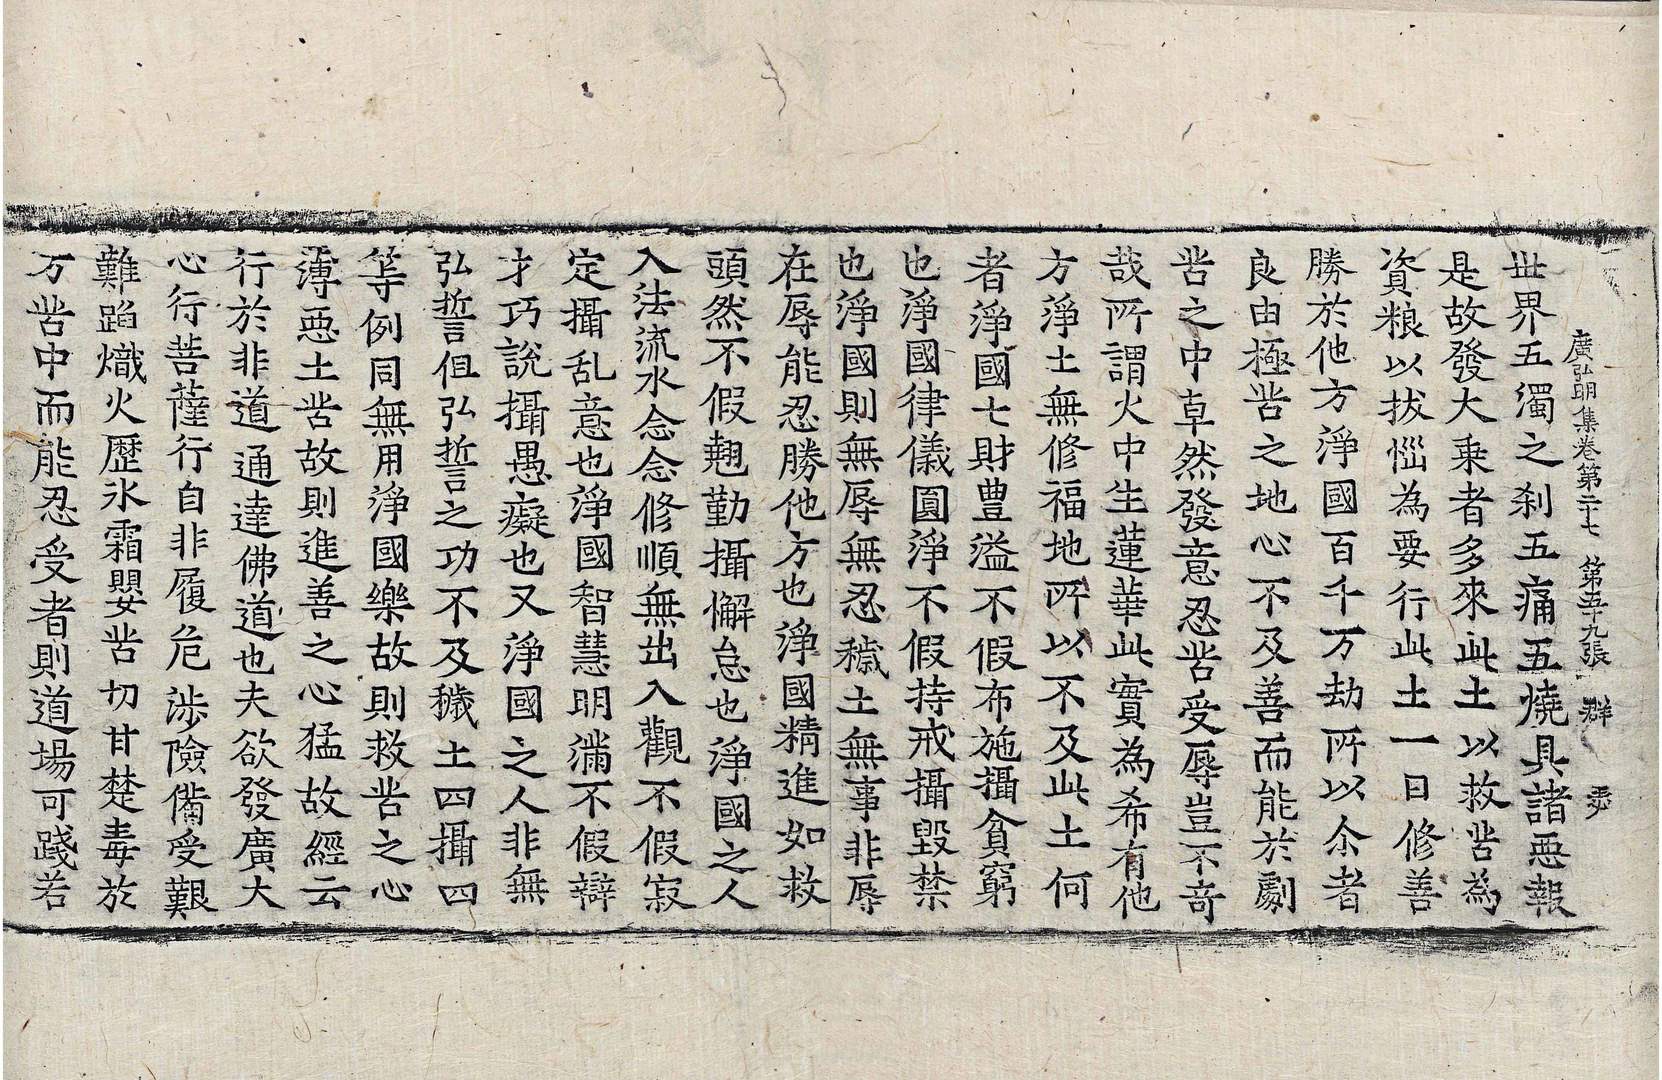 廣弘明集卷第二十七 第五十九張 群
世界五濁之刹五痛五燒具諸惡報
是故發大乘者多來此土以救苦為
資粮以拔惱為要行此土一日修善
勝於他方淨國百千万劫所以尒者
良由極苦之地心不及善而能於劇
苦之中卓然發意忍苦受辱豈不奇
哉所謂火中生蓮華此實為希有他
方淨土無修福地所以不及此土何
者淨國七財豊溢不假布施攝貧窮
也淨國律儀圓淨不假持戒攝毀禁
也淨國則無辱無忍穢土無事非辱
在辱能忍勝他方也淨國精進如救
頭然不假翹勤攝懈怠也淨國之人
入法流水念念修順無出入觀不假寂
定攝乱意也淨國智慧明滿不假辯
才巧說攝愚癡也又淨國之人非無
弘誓但弘誓之功不及穢土四攝四
等例同無用淨國樂故則救苦之心
薄惡土苦故則進善之心猛故經云
行於非道通達佛道也夫欲發廣大
心行菩薩行自非履危涉險備受艱
難蹈熾火歷氷霜嬰苦切甘楚毒於
万苦中而能忍受者則道場可踐若